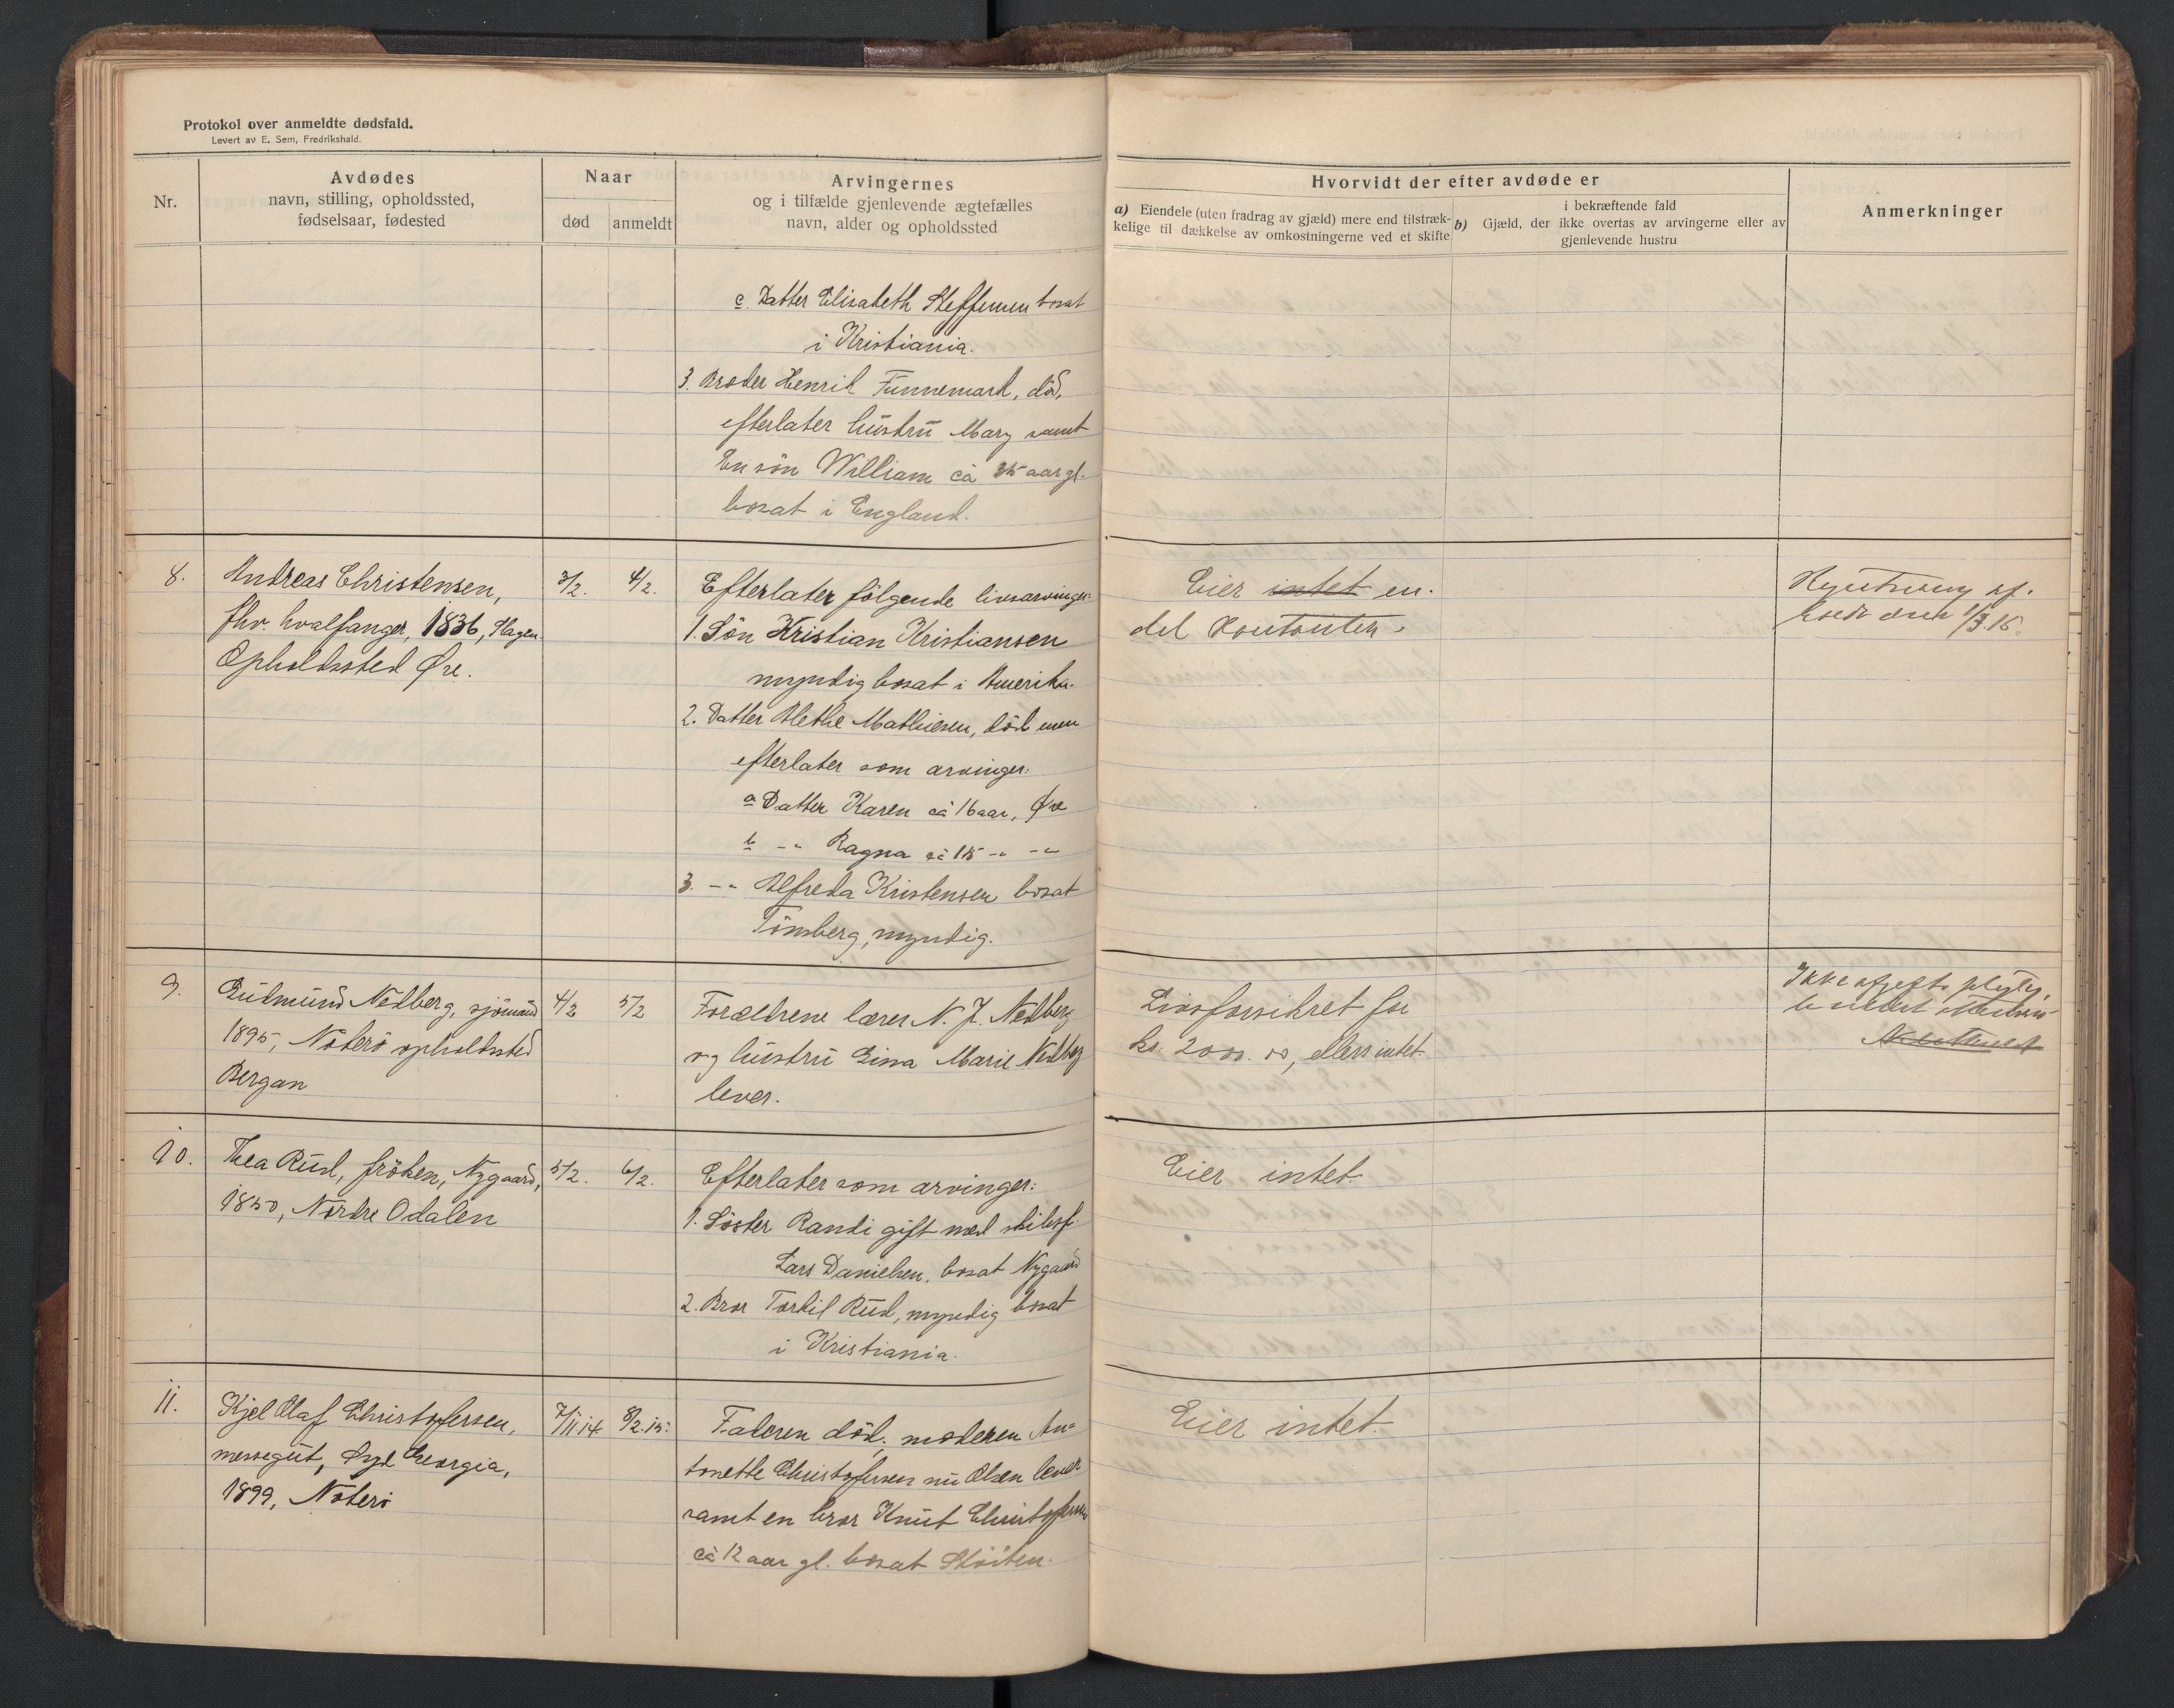 Protokol over anmeldte dødsfald.
Levert av E. Sem, Fredrikshald.
Nr.
Avdødes
navn, stilling, opholdssted,
fødselsaar, fødested
Naar
død anmeldt
Arvingernes
og i tilfælde gjenlevende ægtefælles
navn, alder og opholdssted
Hvorvidt der efter avdøde er
a) Eiendele (uten fradrag av gjæld) mere end tilstræk-
kelige til dækkelse av omkostningerne ved et skifte
i bekræftende fald
b) Gjæld, der ikke overtas av arvingerne eller av
gjenlevende hustru
Anmerkninger
c. Datter Elisabeth Steffensen bosat
i Kristiania.
3. Broder Henrik Funnemark, död,
efterlater hustru Mary samt
En sön William ca 35 aar gl.
bosat i England.
8.
Andreas Christensen,
fhv. hvalfanger, 1836, Slagen
Opholdssted Øre.
3/2. 4/2.
Efterlater følgende livsarvinger:
1. Sön Kristian Kristiansen
myndig bosat i Amerika.
2. Datter Alethe Mathiesen, död men
efterlater som arvinger:
a Datter Karen ca 16 aar, Øre
b -"- Ragna ca 15 -"- -"-
3. -"- Alfreda Kristensen bosat
Tönsberg, myndig.
Eier intet en.
del kontanter.
1/3.15.
9.
Gudmund Nedberg, sjömand
1895, Nöterö opholdssted
Bergan
4/2 5/2
Forældrene lærer N. J. Nedberg
og hustru Gina Marie Nedberg
lever.
Livsforsikret for
kr. 2000.00, ellers intet.
Ikke
10.
Thea Rud, fröken, Nygaard,
1850, Nordre Odalen
5/2. 6/2.
Efterlater som arvinger:
1. Söster Randi gift med skibsf.
Lars Danielsen, bosat Nygaard
2. Bror Torkil Rud, myndig bosat
i Kristiania.
Eier intet.
11.
Kjel Olaf Christofersen,
messegut, Syd Georgia,
1899, Nöterö
7/11.14 8/2.15.
Faderen död; moderen An=
tonette Christofersen nu Olsen lever
samt en bror Knut Christofersen
ca 12 aar gl. bosat Sköiten.
Eier intet.